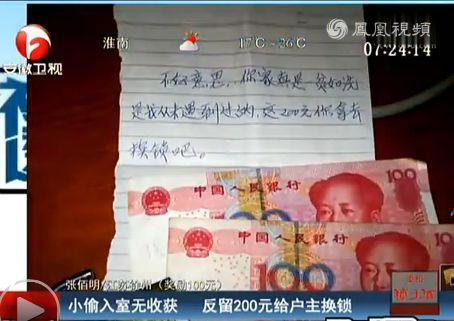 淮南 17℃~26℃ 鳳凰視頻
安徽卫视 07:24:14
不好意思,你家真是贫如洗
是我从未遇到过的,这200元你拿去
换锁吧。
中国人民银行 100
中国人民银行 100
张佰明/江苏徐州(奖励100元)
小偷入室无收获 反留200元给户主换锁